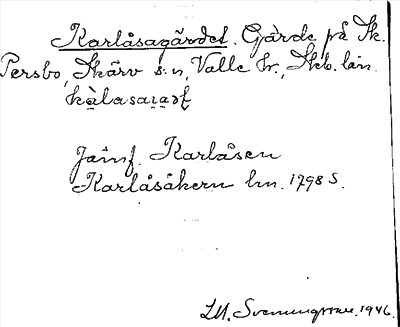 Karlåsagärdet. Gärde på Sk.
Persbo, Skärv s:n, Valle hr., Skb. län.
kàlasaɪaɪ
Jämf. Karlåsen
Karlåsåkern lm. 1798 S.
I.M. Svenungsson. 1946.